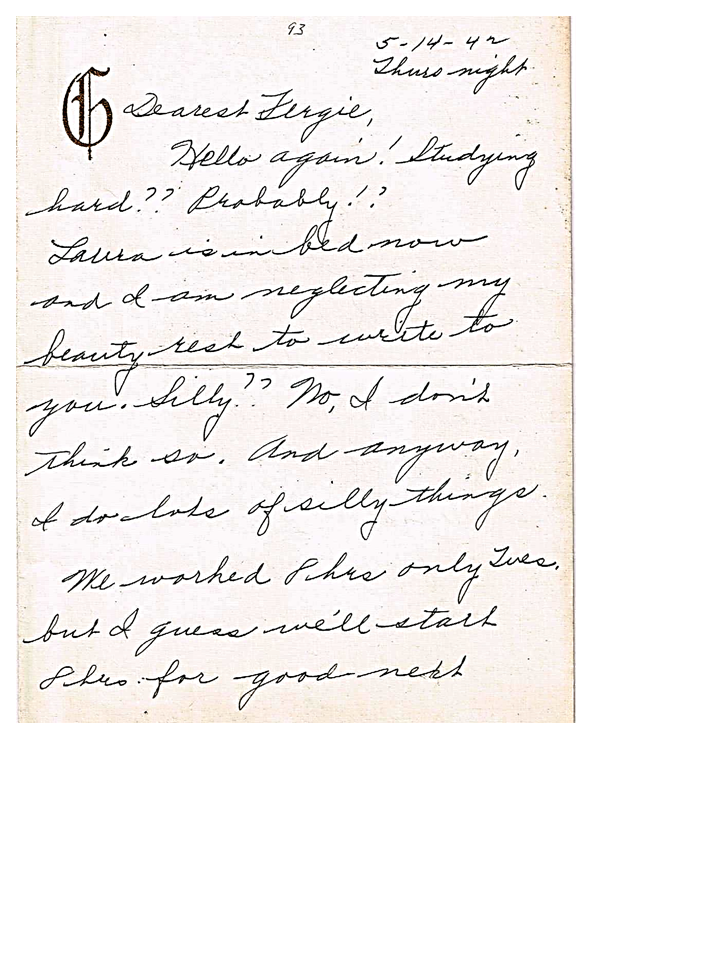 93
5-14-42
Thurs night
G
Dearest Fergie,
Hello again! Studying
hard?? Probably!?
Laura is in bed now
and I am neglecting my
beauty rest to write to
you. Silly?? No, I don't
think so. And anyway,
I do lots of silly things.
We worked 8 hrs only Tues.
but I guess we'll start
8 hrs. for good next